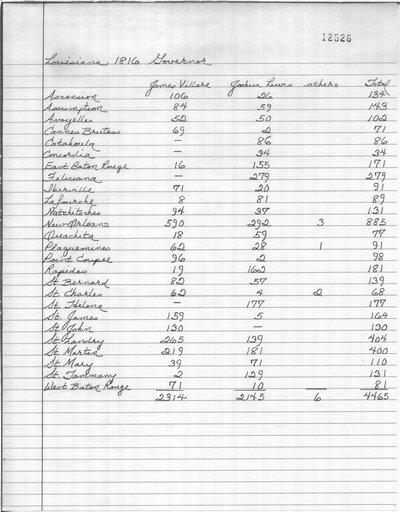 12526
Louisiana 1816 Governor
James Villere Joshua Lewis others Total
Ascension 106 26 134
Assumption 84 59 143
Avoyelles 52 50 102
Cannes Bruless 69 2 71
Catahoula — 86 86
Concordia — 34 34
East Baton Rouge 16 155 171
Feliciana — 279 279
Iberville 71 20 91
Lafourche 8 81 89
Natchitoches 94 37 131
New Orleans 590 292 3 885
Ouachita 18 59 77
Plaquemines 62 28 1 91
Point Coupee 96 2 98
Rapides 19 162 181
St. Bernard 82 57 139
St. Charles 62 4 2 68
St. Helena — 177 177
St. James 159 5 164
St. John 130 — 130
St. Landry 265 139 404
St. Martin 219 181 400
St. Mary 39 71 110
St. Tammany 2 129 131
West Baton Rouge 71 10 81
2314 2145 6 4465